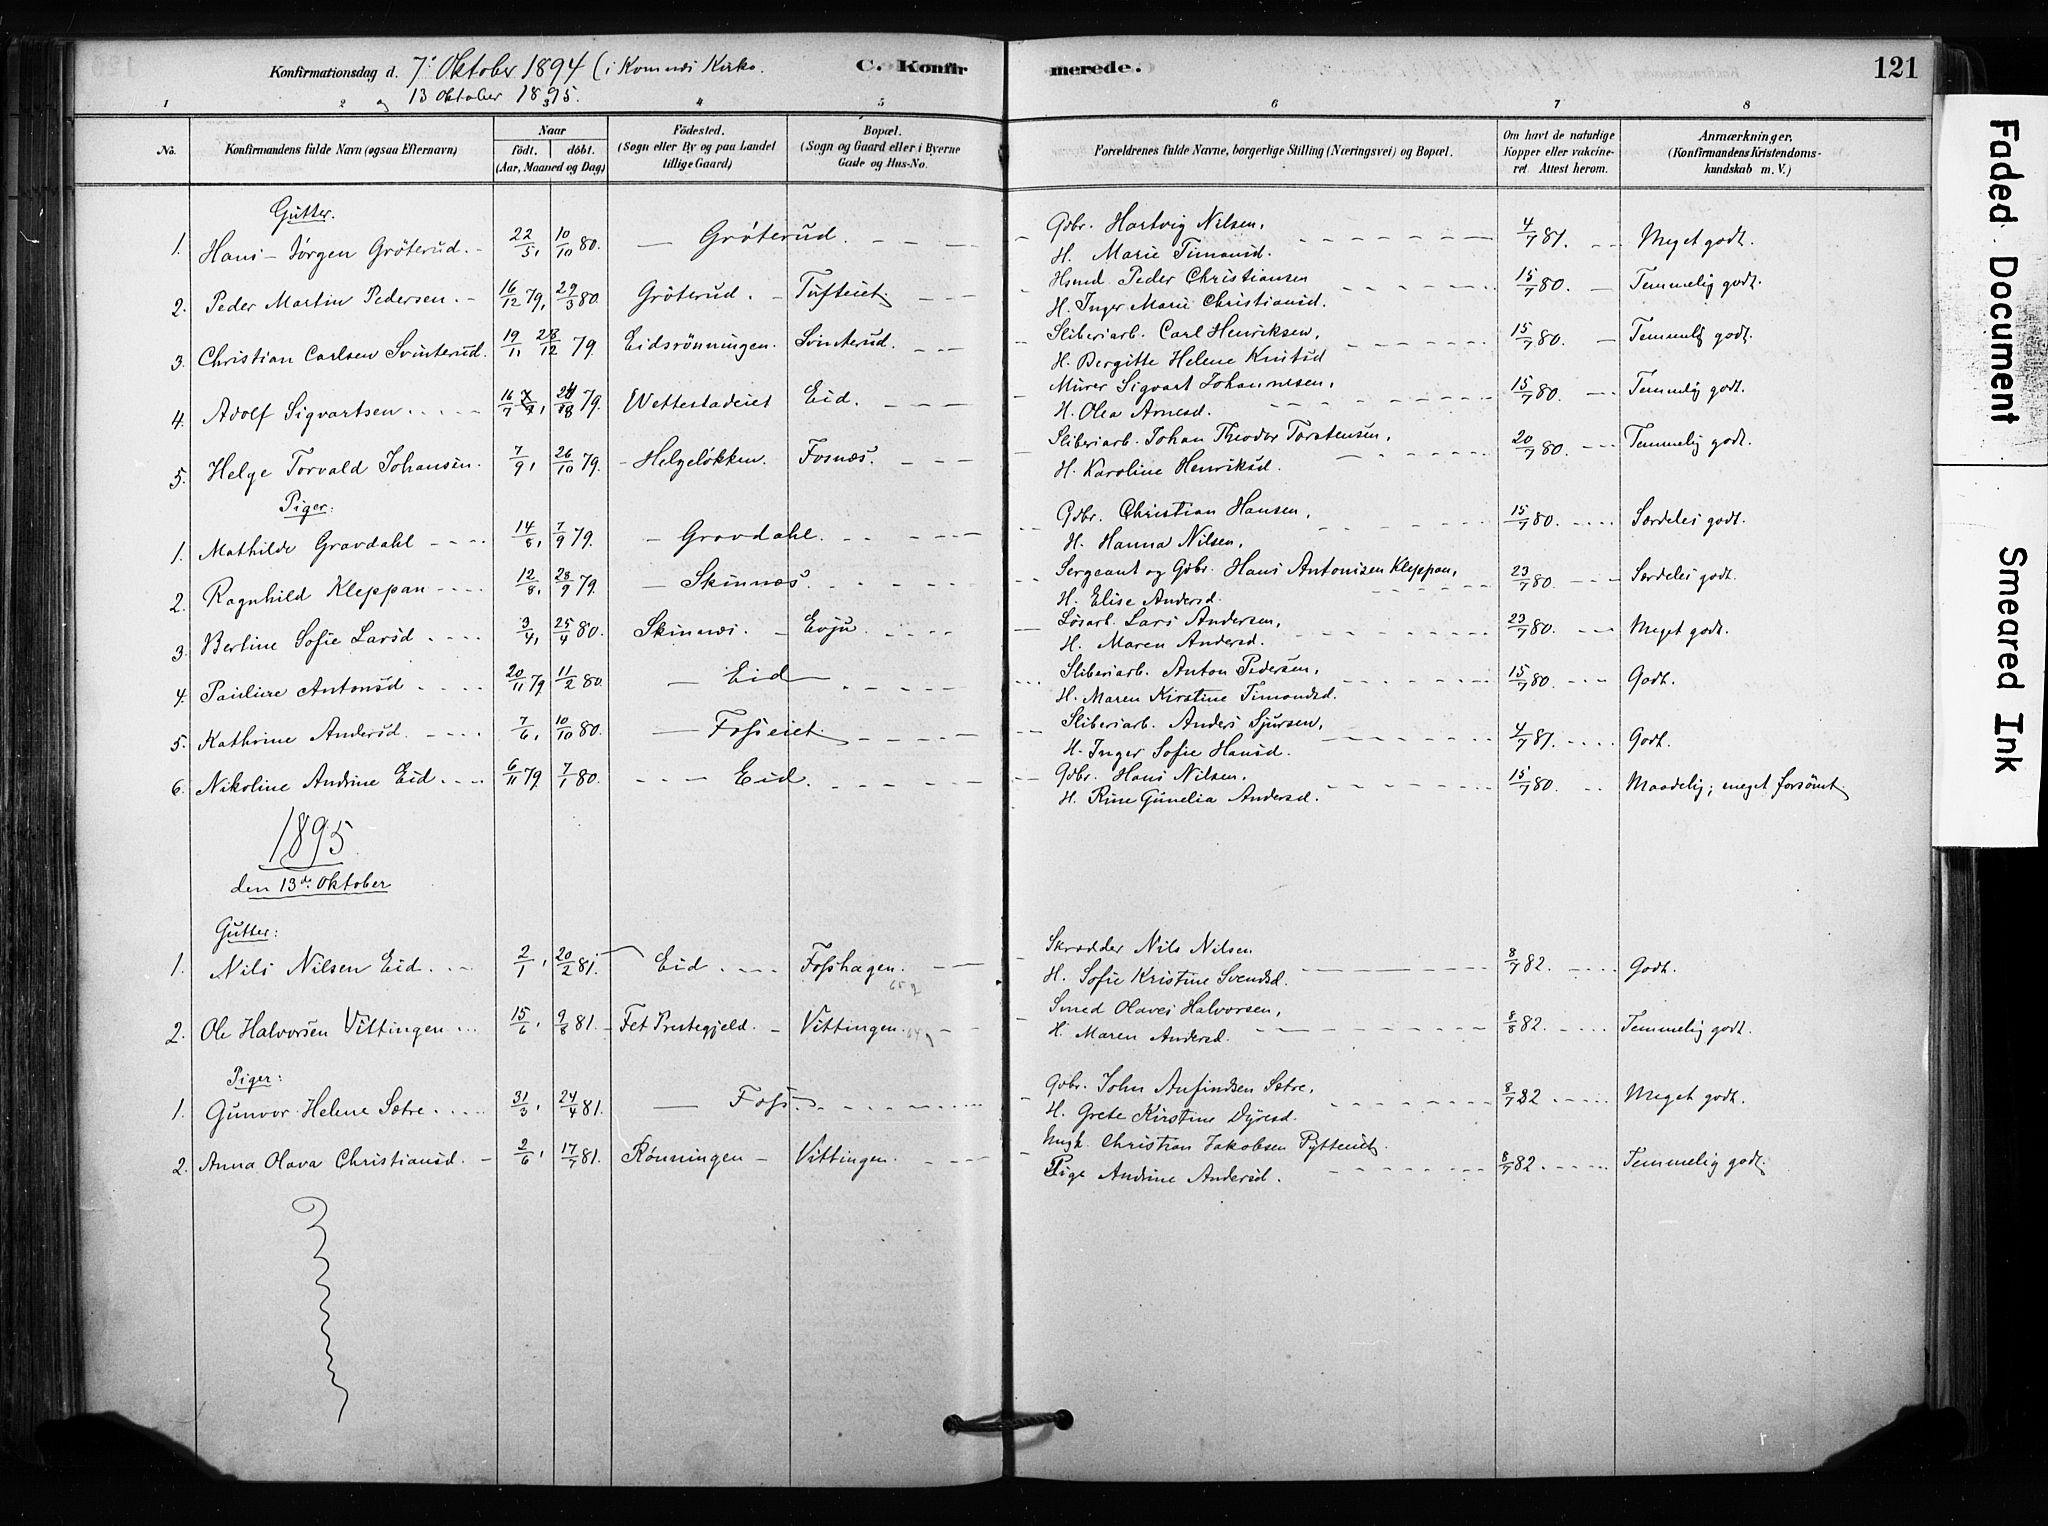 Konfirmationsdag d. 7de Oktober 1894 (i Komnæs Kirke.
og 13 Oktober 1895.
C. Konfirmerede.
121
1 2 3 4 5 6 7 8
No.
Konfirmandens fulde Navn (ogsaa Efternavn)
Naar
født. døbt.
(Aar, Maaned og Dag)
Fødested.
(Sogn eller By og paa Landet tillige Gaard)
Bopæl.
(Sogn og Gaard eller i Byerne Gade og Hus-No.
Forældrenes fulde Navne, borgerlige Stilling (Næringsvei) og Bopæl.
Om havt de naturlige Kopper eller vakcineret Attest herom.
Anmærkninger.
(Konfirmandens Kristendomskundskab m. V.)
Gutter.
1. Hans Jørgen Grøterud. 22/5, 10/10 80. Grøterud. Gdbr. Hartvig Nilsen, H. Marie Timansd. 4/7 81. Meget godt.
2. Peder Martin Pedersen. 16/12 79, 29/3 80. Grøterud. Tufteiet. Hsmd Peder Christiansen H. Inger Marie Christiansd. 15/7 80. Temmelig godt.
3. Christian Carlsen Svinterud. 19/11 28/12 79. Eidsrønningen. Svinterud. Sliberiarb. Carl Henriksen, H. Bergitte Helene Knutsd 15/7 80. Temmelig godt.
4. Adolf Sigvartsen 16/7, 79. Wettestadeiet Eid. Murer Sigvart Johannesen, H. Olea Arnesd. 15/7 80. Temmelig godt.
5. Helge Torvald Johansen. 7/9, 26/10 79. Helgeløkken. Fosnæs. Sliberiarb. Johan Theodor Torstensen, H. Karoline Henriksd. 20/7 80. Temmelig godt.
Piger:
1. Mathilde Gravdahl 14/8, 7/9 79. Gravdahl. Gdbr. Christian Hansen, H. Hanna Nilsen, 15/7 80. Særdeles godt.
2. Ragnhild Kleppan 12/8, 28/9 79. Skinnæs. Sergeant og Gdbr. Hans Antonisen Kleppan, H. Elise Andersd. 23/7 80. Særdeles godt.
3. Bertine Sofie Larsd 3/4, 25/4 80. Skinnæs. Evju. Løsarb. Lars Andersen, H. Maren Andersd. 23/7 80. Meget godt.
4. Pauline Antonsd 20/11 79 11/2 80. Eid Sliberiarb. Anton Pedersen, H. Maren Kirstine Timandsd. 15/7 80. Godt.
5. Kathrine Andersd. 7/6, 10/10 80. Fosseiet. Sliberiarb. Anders Sjursen, H. Inger Sofie Hansd. 4/7 81. Godt.
6. Nikoline Andrine Eid. 6/11 79. 7/1 80. Eid. Gdbr. Hans Nilsen, H. Rine Gunelia Andersd. 15/7 80. Maadelig; meget forsømt.
1895
den 13de Oktober
Gutter:
1. Nils Nilsen Eid. 2/1, 20/2 81. Eid. Fosshagen. Skrædder Nils Nilsen H. Sofie Kristine Svendsd. 8/7 82. Godt.
2. Ole Halvorsen Vittingen 15/6, 9/8 81. Fet Prestegjeld. Vittingen. Smed Olaves Halvorsen, H. Maren Andersd. 8/8 82. Temmelig godt.
Piger:
1. Gunvor Helene Sætre. 31/3, 24/4 81. Foss. Gdbr. John Anfindsen Sætre, H. Grete Kirstine Dyresd. 8/7 82 Meget godt.
2. Anna Olava Christiansd. 2/6, 17/7 81. Rønningen Vittingen. Ungk. Christian Jakobsen Pytteiet. Pige Andrine Andersd. 8/7 82. Temmelig godt.
Faded Document
Smeared Ink